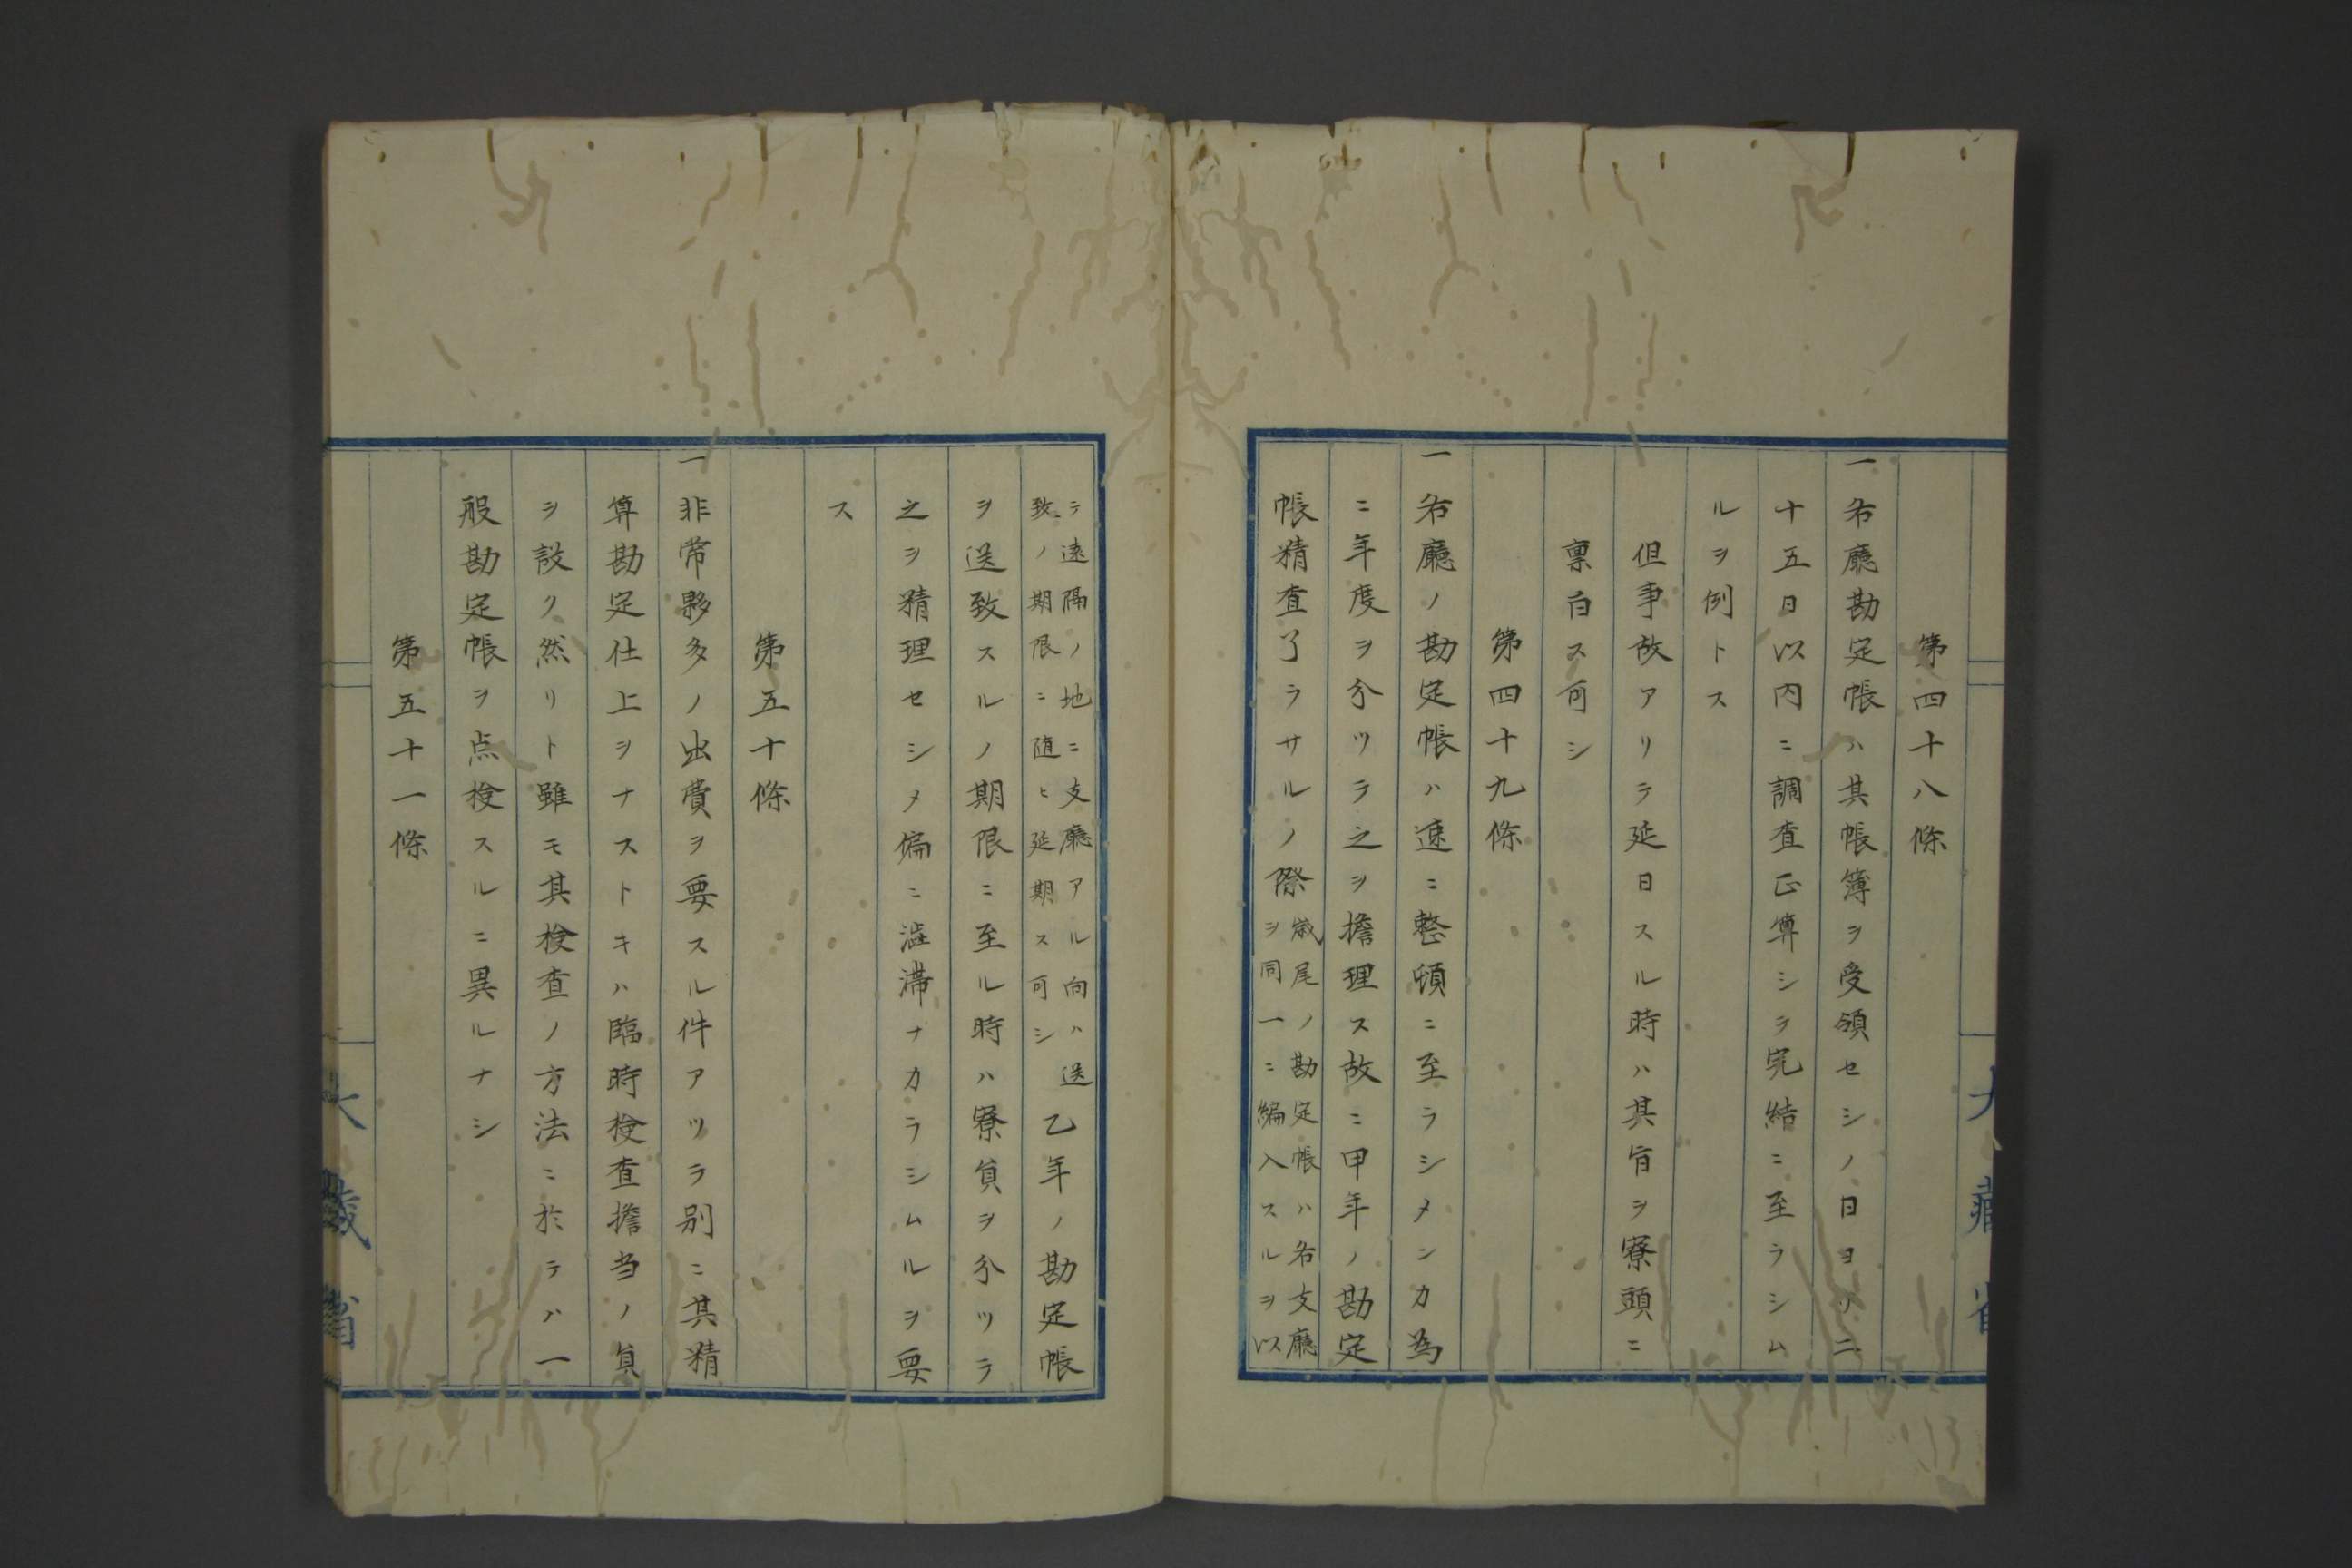 大藏省
第四十八條
一各廳勘定帳ハ其帳簿ヲ受領セシノ日ヨリ二
十五日以内ニ調査正算シテ完結ニ至ラシム
ルヲ例トス
但事故アリテ延日スル時ハ其旨ヲ寮頭ニ
稟白ス可シ
第四十九條
一各廳ノ勘定帳ハ速ニ整頓ニ至ラシメンカ為
ニ年度ヲ分ツテ之ヲ擔理ス故ニ甲年ノ勘定
帳精査了ラサルノ際
歳尾ノ勘定帳ハ各支廳
ヲ同一ニ編入スルヲ以
テ遠隔ノ地ニ支廳アル向ハ送
致ノ期限ニ随ヒ延期ス可シ
乙年ノ勘定帳
ヲ送致スルノ期限ニ至ル時ハ寮員ヲ分ツテ
之ヲ精理セシメ偏ニ澁滞ナカラシムルヲ要
ス
第五十條
一非常夥多ノ出費ヲ要スル件アツテ別ニ其精
算勘定仕上ヲナストキハ臨時検査擔当ノ員
ヲ設ク然リト雖モ其検査ノ方法ニ於テハ一
般勘定帳ヲ点検スルニ異ルナシ
第五十一條
大藏省